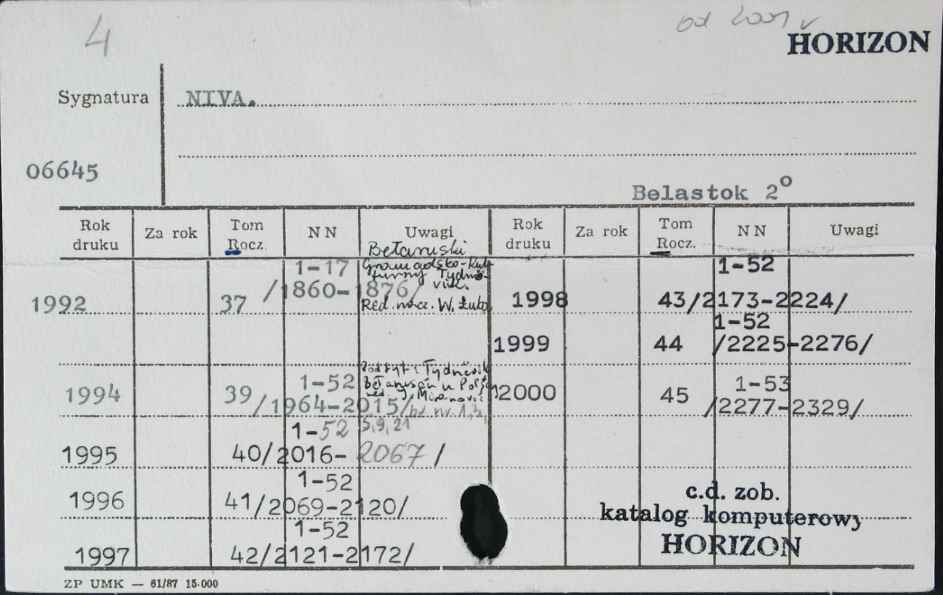 4
od 2001 r
HORIZON
Sygnatura
NIVA.
06645
Belastok 2°
Rok druku Za rok Tom Rocz. NN Uwagi Rok druku Za rok Tom Rocz. NN Uwagi
1992 37 1-17 /1860-1876/
Bełaruski
Gramadsko-kul
turny Tydnë-
vik.
Red. nacz. W. Łuba
1998 43 1-52 /2173-2224/
1999 44 1-52 /2225-2276/
1994 39 1-52 /1964-2015/
Podtyt.: Tydnëvik
Bełarusaŭ u Pol
red.
br. nr. 1,3,
5,9,21
2000 45 1-53 /2277-2329/
1995 40 1-52 /2016-2067/
1996 41 1-52 /2069-2120/
1997 42 1-52 /2121-2172/
c.d. zob.
katalog komputerowy
HORIZON
ZP UMK — 61/87 15.000